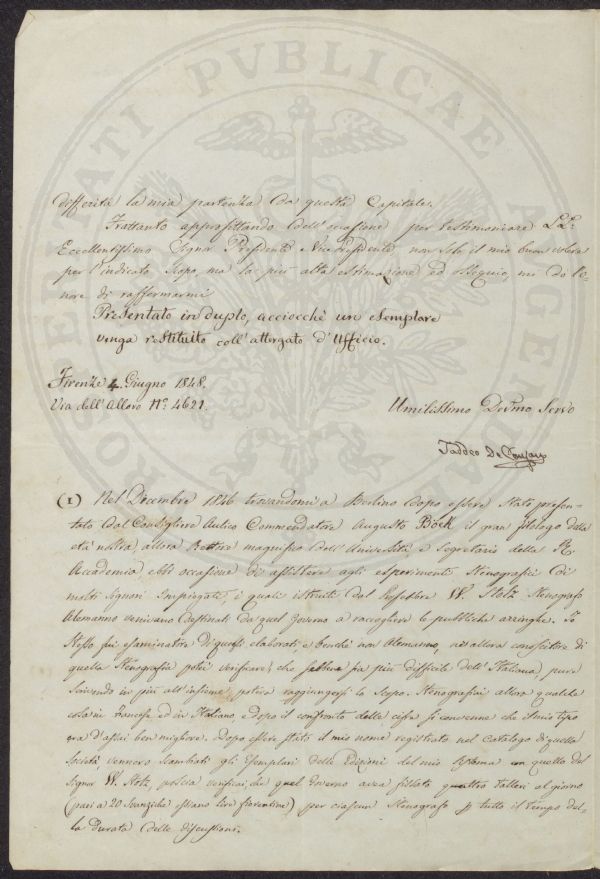 PROSPERITATI PVBLICAE AVGENDAE
differita la mia partenza da questa Capitale.
Frattanto approfittando dell'occasione per testimoniare
Eccellentissimo Signor Presidente Vicepresidente non solo il mio buon volere
per l'indicato scopo, ma la più alta estimazione ed ossequio, mi do l'o-
nore di raffermarmi
Presentato in duplo, acciocchè un esemplare
venga restituito coll'attergato d'Ufficio.
Firenze 4. Giugno 1848.
Via dell'Alloro N.° 4621.
Umilissimo Devmo Servo
Taddeo De
(1) Nel Dicembre 1846 trovandomi a Berlino dopo essere stato presen-
tato dal Consigliere Aulico Commendatore Augusto Böck il gran filologo della
età nostra, allora Rettore magnifico dell'Università e Segretario della R.
Accademia ebbi occasione di assistere agli esperimenti Stenografici di
molti Signori Impiegati, i quali istruiti dal W. Stolz Stenografo
Alemanno venivano destinati da quel Governo a raccogliere le pubbliche arringhe. Io
stesso fui esaminatore di quegli elaborati e benchè non Alemanno, nè allora conoscitore di
quella Stenografia potei verificare, che sebbene sia più difficile dell'Italiana, pure
scrivendo in più all'insieme poteva raggiungersi lo scopo. Stenografai allora qualche
cosa in Francese ed in Italiano, e dopo il confronto delle cifre si convenne che il mio tipo
era d'assai ben migliore. Dopo essere stato il mio nome registrato nel Catalogo di quella
Società, vennero scambiati gli Esemplari delle Edizioni del mio Sistema con quelle del
Signor W. Stolz, poscia verificai, che quel Governo avea fissato quattro talleri al giorno
(pari a 20 Svanziche ossiano lire fiorentine) per ciascun Stenografo p tutto il tempo del-
la durata delle discussioni.